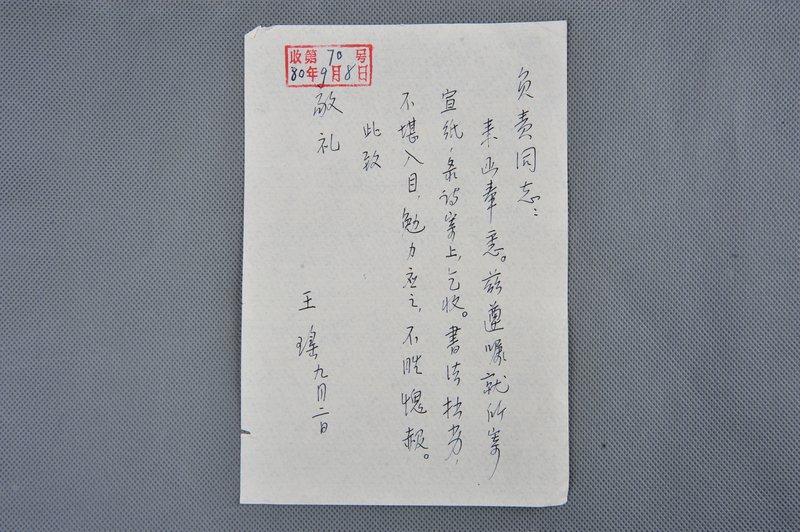 负责同志：
来函奉悉。兹遵嘱就所寄
宣纸，录诗寄上，乞收。書法拙劣，
不堪入目，勉力应之，不胜愧赧。
此致
敬礼
王瑤九月二日
收第70号
80年9月8日